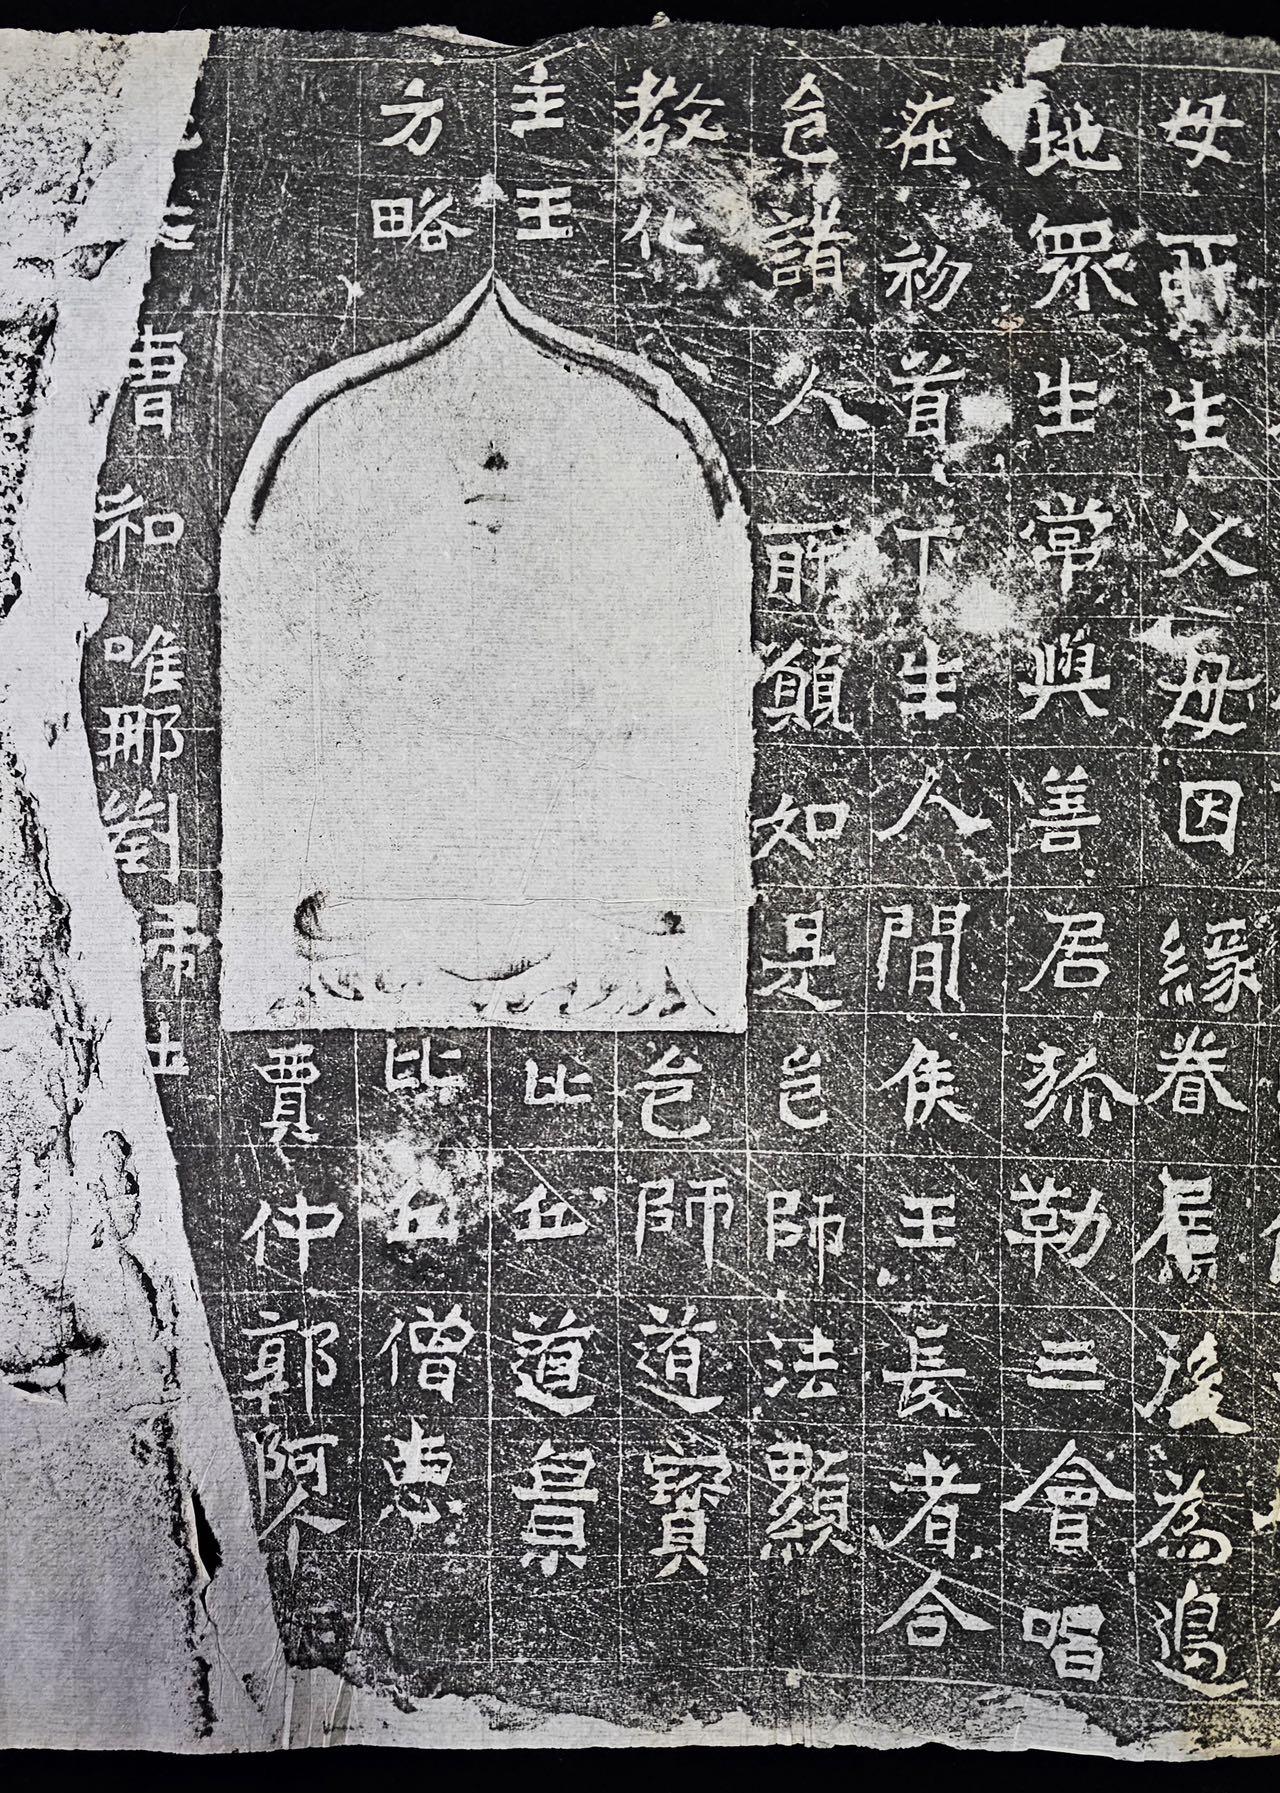 母所生父母因緣眷屬後為邊
地眾生常與善居弥勒三會唱
在初首下生人間侯王長者合
邑諸人所願如是邑師法顯
教化 邑師道寶
主王 比丘道
方略 比丘僧惠
賈仲郭阿
曹和唯那劉